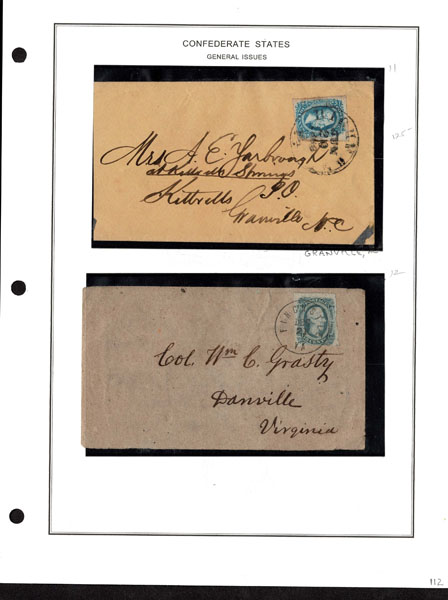 CONFEDERATE STATES
GENERAL ISSUES
11
125-
Mrs A. E. Yarbrough
at Kittrells Springs
Kittrells P.O.
Granville N.C
GRANVILLE, NC
12
Col. Wm C. Grasty
Danville
Virginia
112